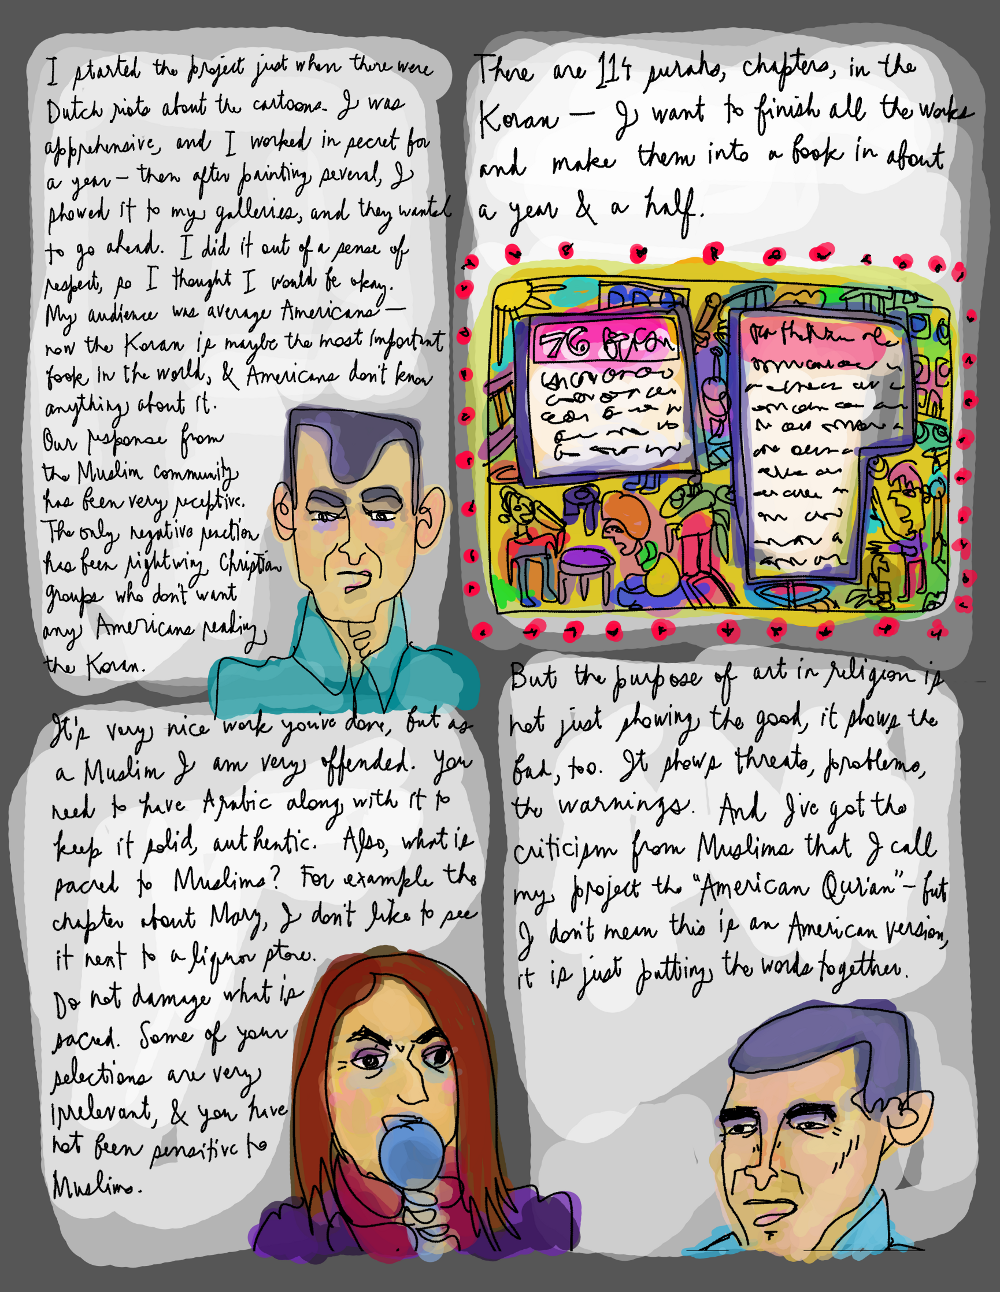 I started the project just when there were
Dutch riots about the cartoons. I was
apprehensive, and I worked in secret for
a year — then after painting several, I
showed it to my galleries, and they wanted
to go ahead. I did it out of a sense of
respect, so I thought I would be okay.
My audience was average Americans —
now the Koran is maybe the most important
book in the world, & Americans don't know
anything about it.
Our response from
the Muslim community
has been very receptive.
The only negative reaction
has been rightwing Christian
groups who don't want
any Americans reading
the Koran.
There are 114 surahs, chapters, in the
Koran — I want to finish all the works
and make them into a book in about
a year & a half.
76
It's very nice work you've done, but as
a Muslim I am very offended. You
need to have Arabic along with it to
keep it solid, authentic. Also, what is
sacred to Muslims? For example the
chapter about Mary, I don't like to see
it next to a liquor store.
Do not damage what is
sacred. Some of your
selections are very
irrelevant, & you have
not been sensitive to
Muslims.
But the purpose of art in religion is
not just showing the good, it shows the
bad, too. It shows threats, problems,
the warnings. And I've got the
criticism from Muslims that I call
my project the "American Qur'an" — but
I don't mean this is an American version,
it is just putting the words together.